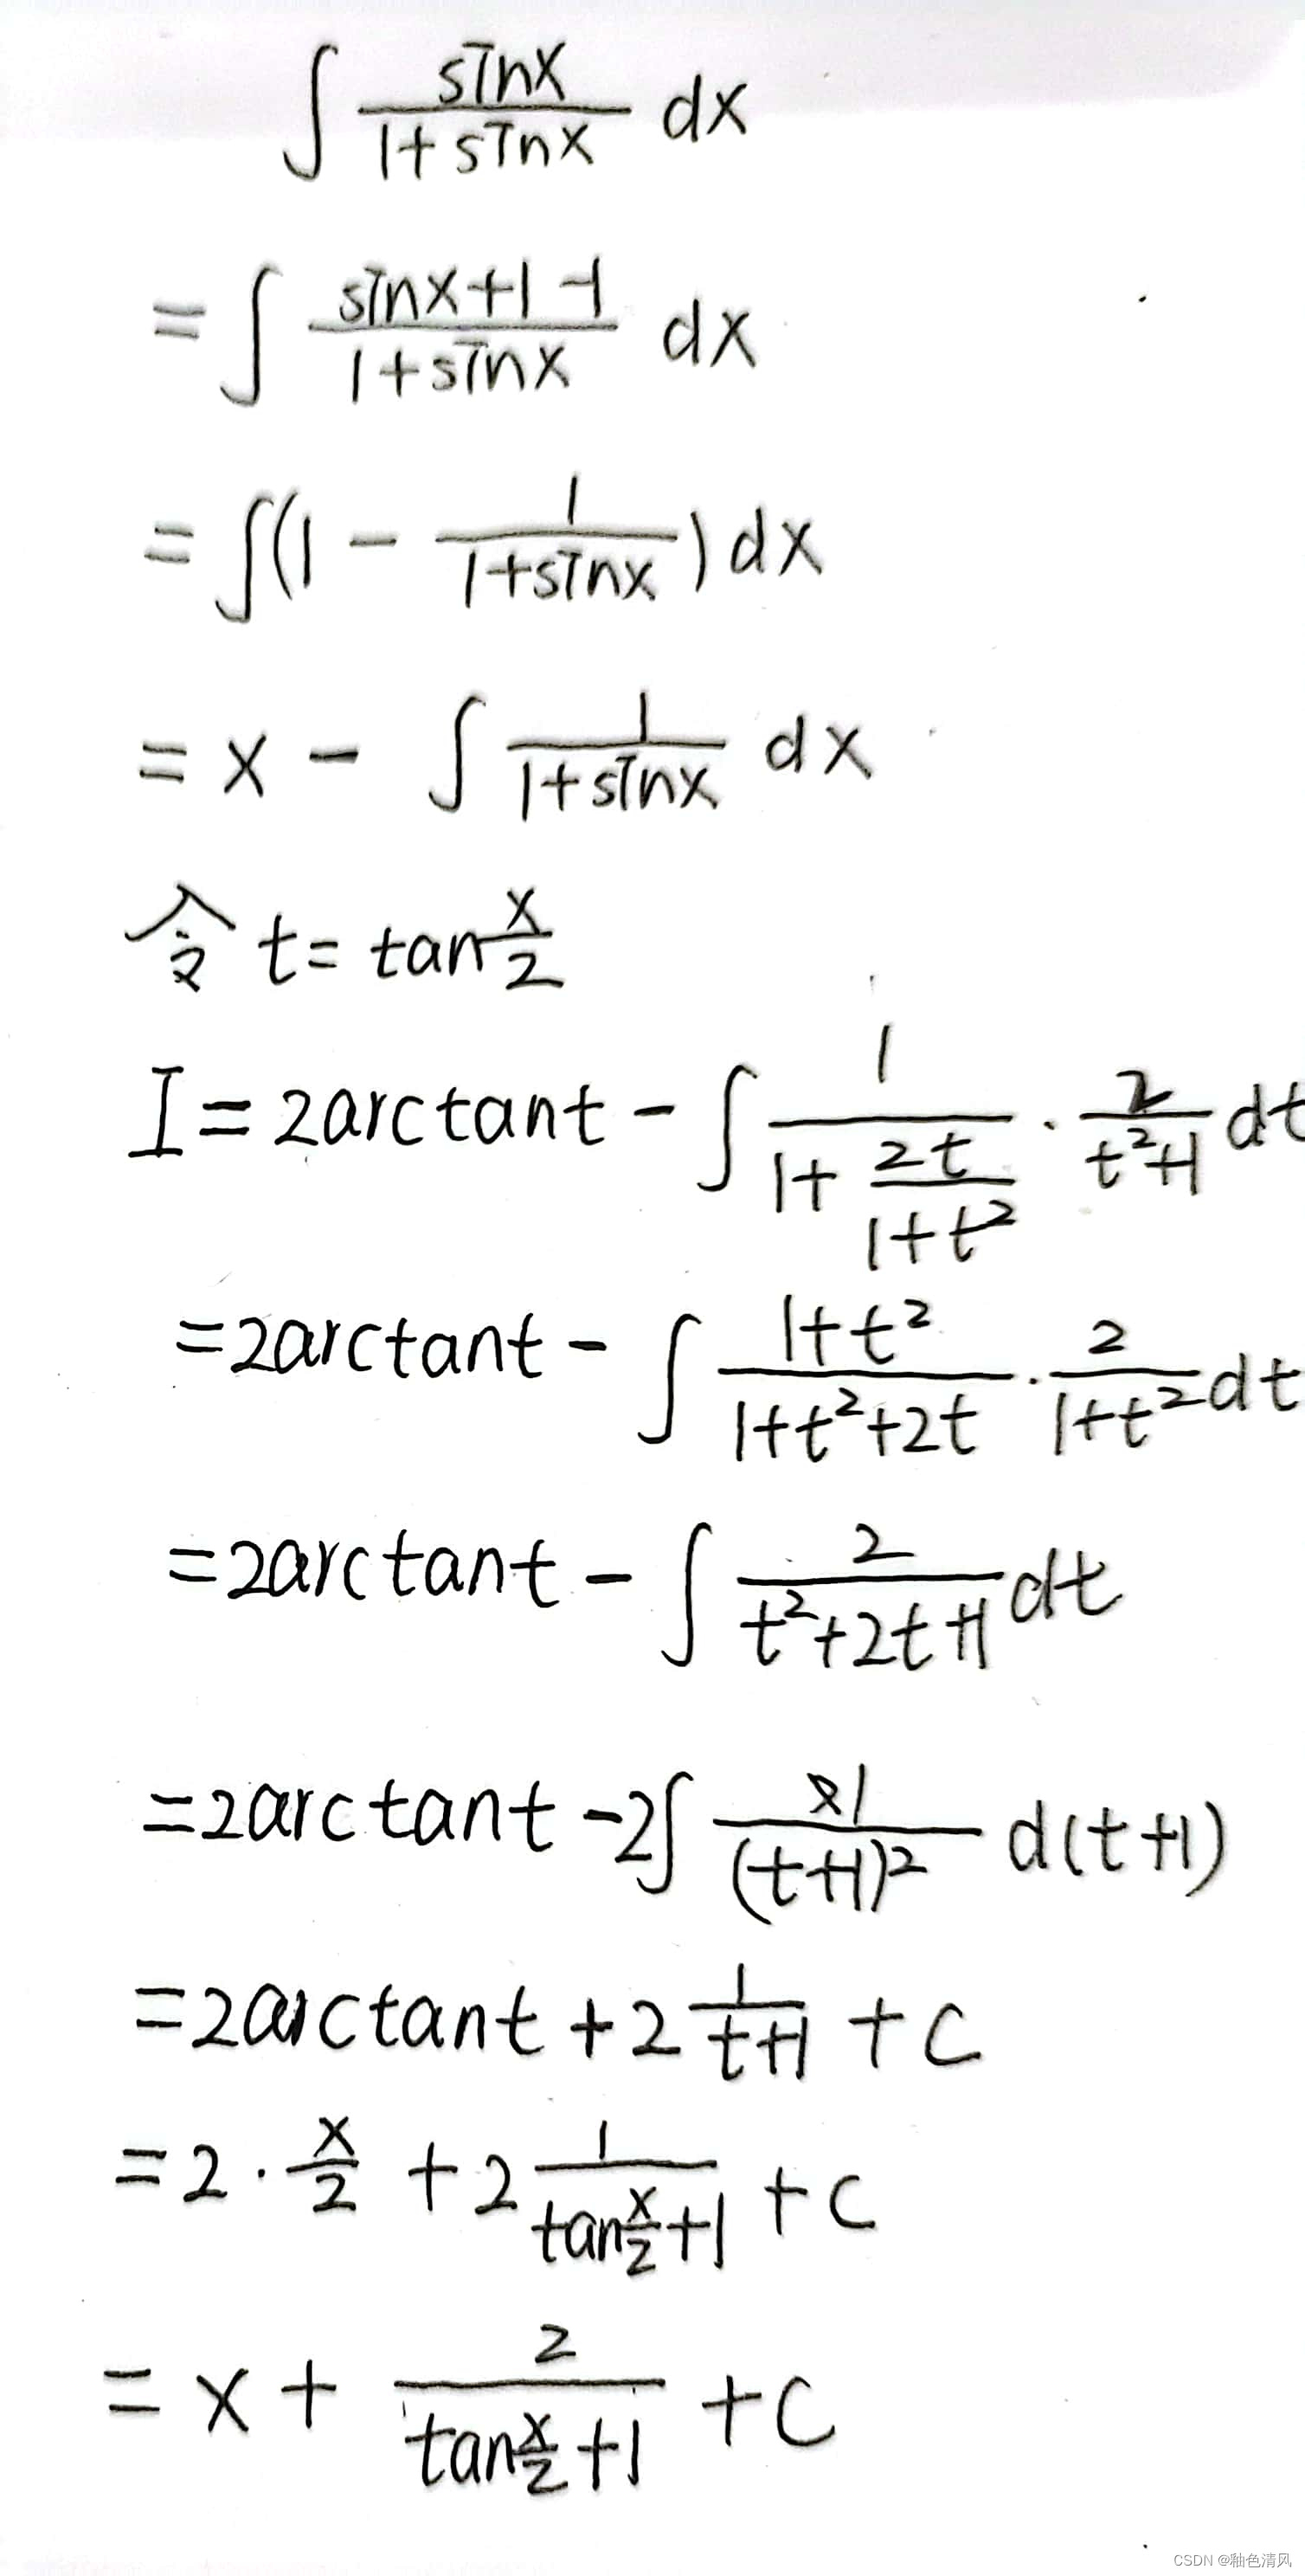 ∫ sinx/(1+sinx) dx
= ∫ (sinx+1-1)/(1+sinx) dx
= ∫(1 - 1/(1+sinx))dx
= x - ∫ 1/(1+sinx) dx
令 t= tan x/2
I = 2arctant - ∫ 1/(1+ 2t/(1+t²)) · 2/(t²+1) dt
=2arctant - ∫ (1+t²)/(1+t²+2t) · 2/(1+t²) dt
=2arctant - ∫ 2/(t²+2t+1) dt
=2arctant -2∫ 1/(t+1)² d(t+1)
=2arctant +2 1/(t+1) +C
=2· x/2 +2 1/(tan x/2 +1) +C
= x+ 2/(tan x/2 +1) +C
CSDN @釉色清风